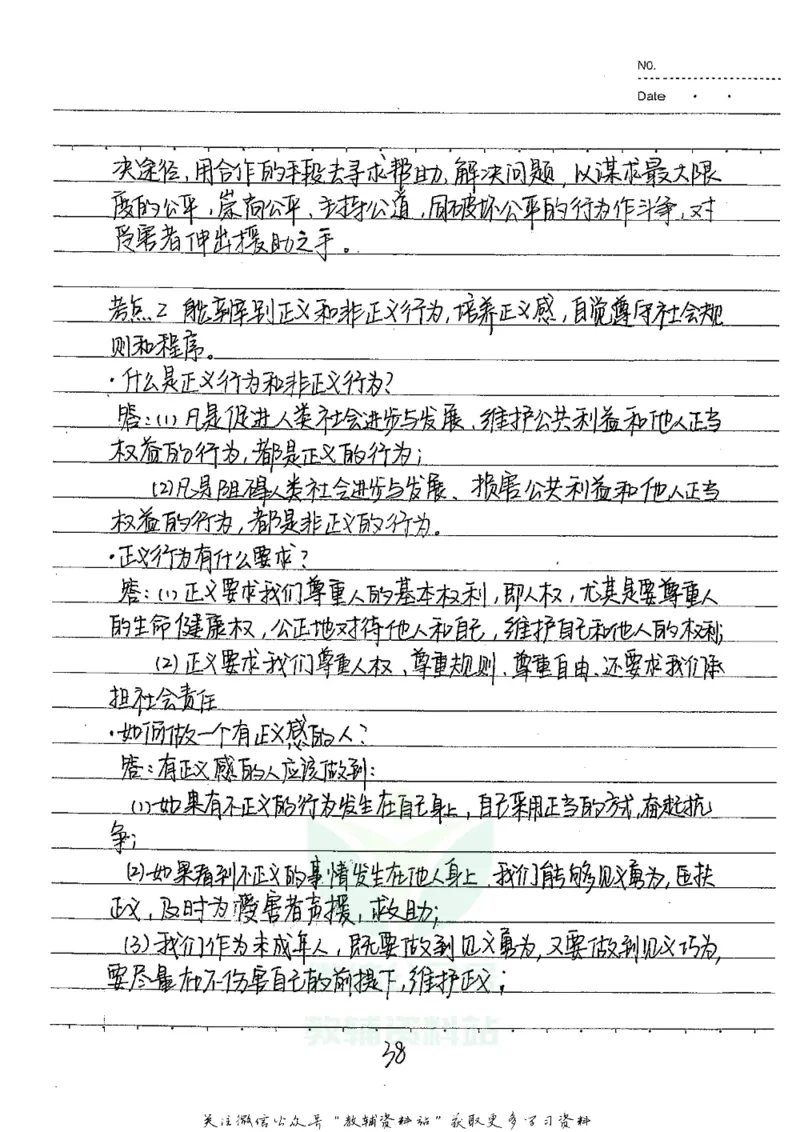 NO.
Date
决途径,用合作的手段去寻求帮助、解决问题,以谋求最大限
度的公平,崇尚公平,主持公道,同破坏公平的行为作斗争,对
受害者伸出援助之手。
考点2 能够辨别正义和非正义行为,培养正义感,自觉遵守社会规
则和程序。
·什么是正义行为和非正义行为?
答:(1)凡是促进人类社会进步与发展、维护公共利益和他人正当
权益的行为,都是正义的行为;
(2)凡是阻碍人类社会进步与发展、损害公共利益和他人正当
权益的行为,都是非正义的行为。
·正义行为有什么要求?
答:(1)正义要求我们尊重人的基本权利,即人权,尤其是要尊重人
的生命健康权,公正地对待他人和自己,维护自己和他人的权利;
(2)正义要求我们尊重人权、尊重规则、尊重自由、还要求我们承
担社会责任
·如何做一个有正义感的人?
答:有正义感的人应该做到:
(1)如果有不正义的行为发生在自己身上,自己采用正当的方式,奋起抗
争;
(2)如果看到不正义的事情发生在他人身上,我们能够见义勇为,匡扶
正义,及时为受害者声援,救助;
(3)我们作为未成年人,既要做到见义勇为,又要做到见义巧为,
要尽量在不伤害自己的前提下,维护正义;
教辅资料站
38
关注微信公众号"教辅资料站"获取更多学习资料